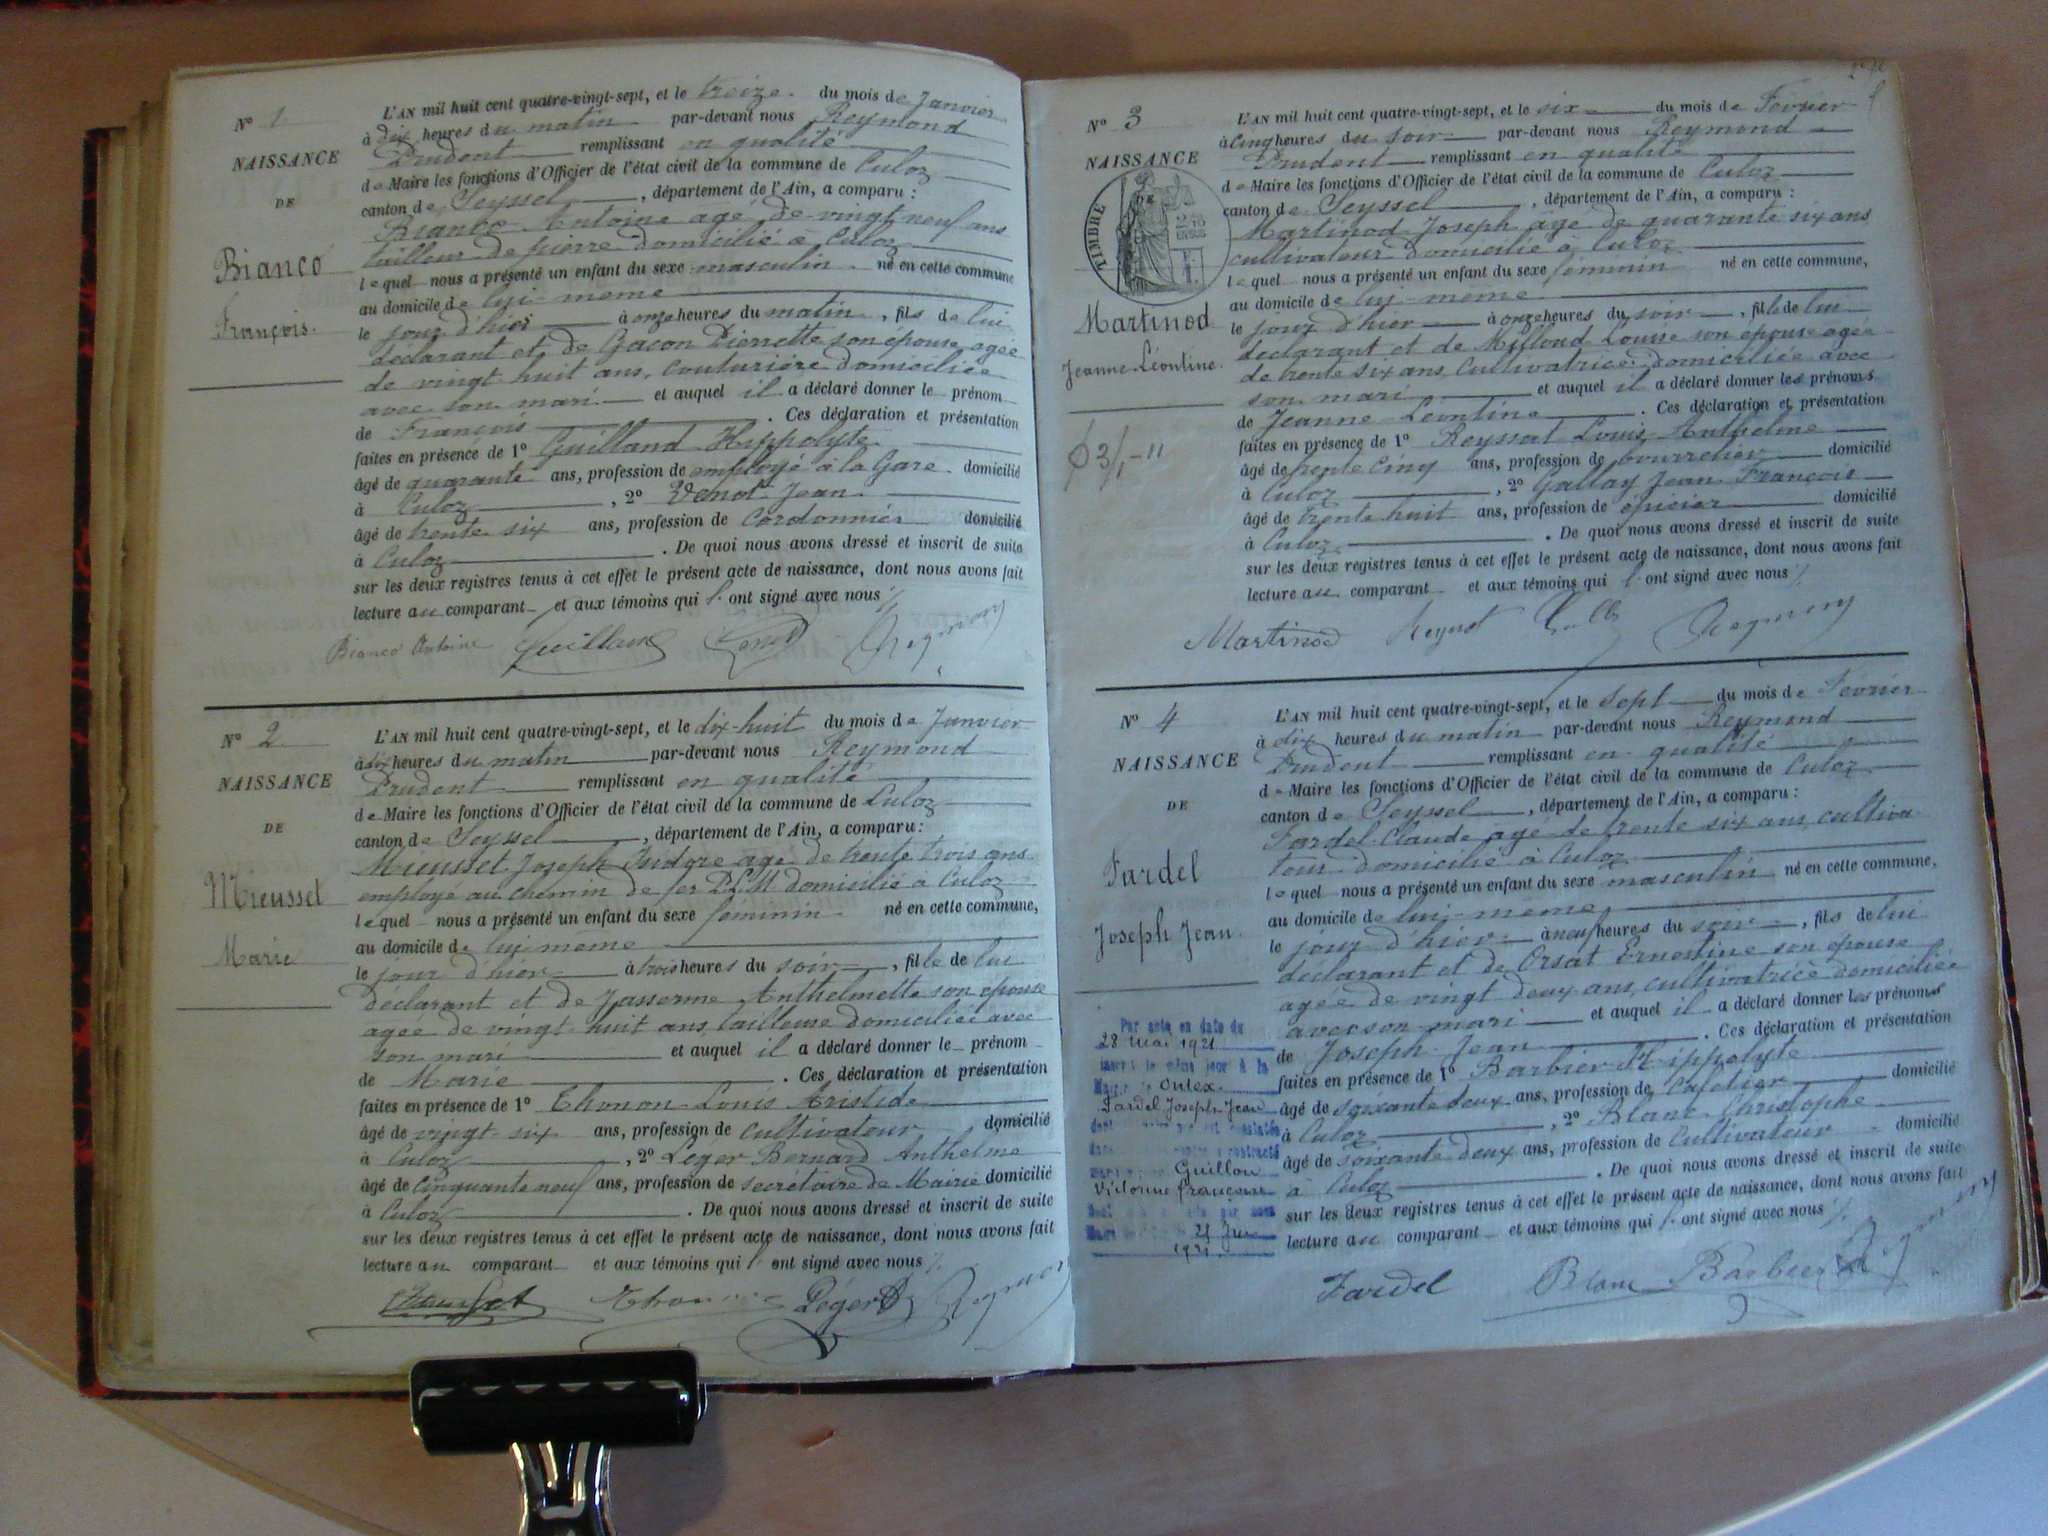 N° 1
NAISSANCE
DE
Bianco
François.
L'AN mil huit cent quatre-vingt-sept, et le treize du mois de Janvier
à dix heures du matin par-devant nous Reymond
Prudent remplissant en qualité
de Maire les fonctions d'Officier de l'état civil de la commune de Culoz
canton de Seyssel, département de l'Ain, a comparu :
Bianco Antoine agé de vingt neuf ans
tailleur de pierre domicilié à Culoz
lequel nous a présenté un enfant du sexe masculin né en cette commune
au domicile de lui-même
le jour d'hier à onze heures du matin, fils de lui
déclarant et de Gacon Pierrette son épouse agée
de vingt huit ans, couturière domiciliée
avec son mari et auquel il a déclaré donner le prénom
de François. Ces déclaration et présentation
faites en présence de 1° Guilland Hippolyte
âgé de quarante ans, profession de employé à la Gare domicilié
à Culoz, 2° Venot Jean
âgé de trente six ans, profession de Cordonnier domicilié
à Culoz. De quoi nous avons dressé et inscrit de suite
sur les deux registres tenus à cet effet le présent acte de naissance, dont nous avons fait
lecture au comparant et aux témoins qui l'ont signé avec nous
Bianco Antoine Guilland Venot Reymond
N° 2
NAISSANCE
DE
Mieusset
Marie
L'AN mil huit cent quatre-vingt-sept, et le dix-huit du mois de Janvier
à dix heures du matin par-devant nous Reymond
Prudent remplissant en qualité
de Maire les fonctions d'Officier de l'état civil de la commune de Culoz
canton de Seyssel, département de l'Ain, a comparu :
Mieusset Joseph Isidore agé de trente trois ans
employé au chemin de fer PLM domicilié à Culoz
lequel nous a présenté un enfant du sexe féminin né en cette commune,
au domicile de lui même
le jour d'hier à trois heures du soir, fille de lui
déclarant et de Jasserme Anthelmette son épouse
agée de vingt huit ans, tailleuse domiciliée avec
son mari et auquel il a déclaré donner le prénom
de Marie. Ces déclaration et présentation
faites en présence de 1° Thonon Louis Aristide
âgé de vingt-six ans, profession de cultivateur domicilié
à Culoz, 2° Léger Bernard Anthelme
âgé de Cinquante neuf ans, profession de secrétaire de Mairie domicilié
à Culoz. De quoi nous avons dressé et inscrit de suite
sur les deux registres tenus à cet effet le présent acte de naissance, dont nous avons fait
lecture au comparant et aux témoins qui l'ont signé avec nous
Léger Reymond
N° 3
NAISSANCE
TIMBRE
Martinod
Jeanne-Léontine.
L'AN mil huit cent quatre-vingt-sept, et le six du mois de Février
à cinq heures du soir par-devant nous Reymond
Prudent remplissant en qualité
de Maire les fonctions d'Officier de l'état civil de la commune de Culoz
canton de Seyssel, département de l'Ain, a comparu :
Martinod Joseph âgé de quarante six ans
cultivateur domicilié à Culoz
lequel nous a présenté un enfant du sexe féminin né en cette commune,
au domicile de lui-même
le jour d'hier à onze heures du soir, fille de lui
déclarant et de Milloud Louise son épouse agée
de trente six ans, Cultivatrice domiciliée avec
son mari et auquel il a déclaré donner les prénoms
de Jeanne Léontine. Ces déclaration et présentation
faites en présence de 1° Reyssat Louis Anthelme
âgé de trente cinq ans, profession de bourrelier domicilié
à Culoz, 2° Gallay Jean François
âgé de trente huit ans, profession de épicier domicilié
à Culoz. De quoi nous avons dressé et inscrit de suite
sur les deux registres tenus à cet effet le présent acte de naissance, dont nous avons fait
lecture au comparant et aux témoins qui l'ont signé avec nous
Martinod Reymond
N° 4
NAISSANCE
DE
Fardel
Joseph Jean.
L'AN mil huit cent quatre-vingt-sept, et le sept du mois de Février
à dix heures du matin par-devant nous Reymond
Prudent remplissant en qualité
de Maire les fonctions d'Officier de l'état civil de la commune de Culoz
canton de Seyssel, département de l'Ain, a comparu :
Fardel Claude agé de trente six ans, cultiva
teur domicilié à Culoz
lequel nous a présenté un enfant du sexe masculin né en cette commune,
au domicile de lui-même
le jour d'hier à neuf heures du soir, fils de lui
déclarant et de Orsat Ernestine son épouse
agée de vingt deux ans, cultivatrice domiciliée
avec son mari et auquel il a déclaré donner les prénoms
de Joseph Jean. Ces déclaration et présentation
faites en présence de 1° Barbier Hippolyte
âgé de soixante deux ans, profession de Cafetier domicilié
à Culoz, 2° Blanc Christophe
âgé de soixante deux ans, profession de Cultivateur domicilié
à Culoz. De quoi nous avons dressé et inscrit de suite
sur les deux registres tenus à cet effet le présent acte de naissance, dont nous avons fait
lecture au comparant et aux témoins qui l'ont signé avec nous
Par acte en date du
28 Mai 1921
inscrit le même jour à la
Onlex
Fardel Joseph Jean
Guillon
Françoise
1921
Fardel Blanc Barbier